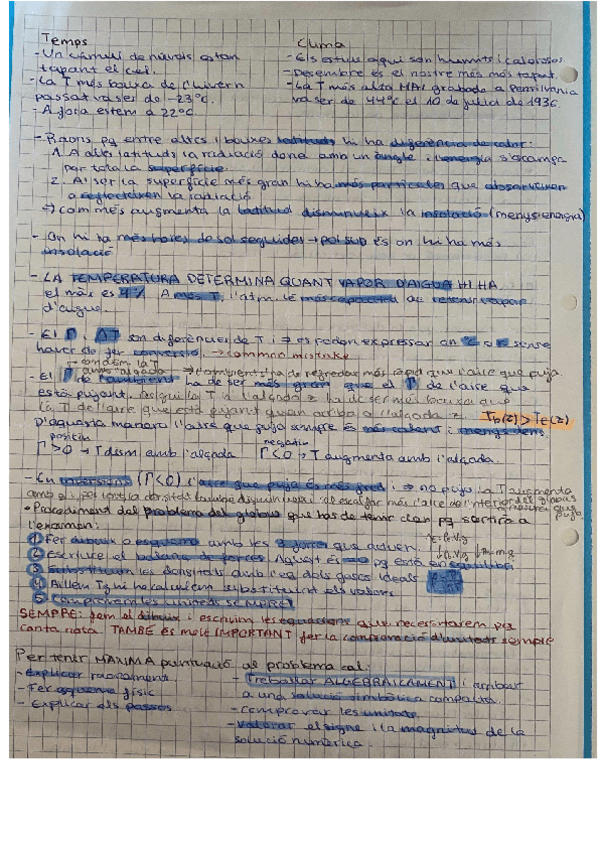 Temps
- Un cúmul de núvols estan
tapant el cel.
- La T més baixa de l'hivern
passat va ser de -23°C.
- A fora estem a 22°C.
Clima
- Els estius aquí són humits i calorosos
- Desembre és el nostre mes més tapat.
- La T més alta MAI grabada a Pensilvania
va ser de 44°C el 10 de juliol de 1936.
- Raons pq entre altes i baixes latituds hi ha diferència de calor:
1. A altes latituds la radiació dona amb un angle i l'energia s'escampa
per tota la superfície.
2. Al ser la superfície més gran hi ha més partícules que absorbeixen
o reflecteixen la radiació
⇒ com més augmenta la latitud disminueix la insolació (menys energia)
- On hi ha més hores de sol seguides → pol sup és on hi ha més
insolació
- LA TEMPERATURA DETERMINA QUANT VAPOR D'AIGUA HI HA
el màx és 4% A més T, l'atm. té més capacitat de retenir vapor
d'aigua.
- El Γ i ΔT són diferències de T i ⇒ es poden expressar en °C o K sense
haver de fer conversió. → common mistake
- El Γ de l'ambient ha de ser més gran que el Γ de l'aire que
està pujant, així la T a l'alçada z ha de ser més baixa que
la T de l'aire que està pujant quan arriba a l'alçada z. Tp(z) > Te(z)
D'aquesta manera l'aire que puja sempre és més calent i menys dens
positiu
Γ>0 → T dism amb l'alçada
negatiu
Γ<0 → T augmenta amb l'alçada.
- En inversions (Γ<0) l'aire que puja és més fred i ⇒ no puja
• Procediment del problema del globus que has de tenir clar pq sortirà a
l'examen:
1 Fer dibuix o esquema amb les 3 forces que actuen.
2 Escriure el balanç de forces. Aquest és =0 pq està en equilibri
3 Substituïm les densitats amb l'eq dels gasos ideals
4 Aïllem Tg i ho calculem substituint els valors
5 Comprovem les unitats SEMPRE!
SEMPRE: fem el dibuix i escrivim les equacions que necessitarem per
cada nota TAMBÉ és molt IMPORTANT fer la comprovació d'unitats sempre
Per tenir MÀXIMA puntuació al problema cal:
- Explicar raonament
- Fer esquema físic
- Explicar els passos
- Treballar ALGEBRAICAMENT i arribar
a una solució simbòlica compacta.
- Comprovar les unitats
- Valorar el signe i la magnitud de la
solució numèrica.